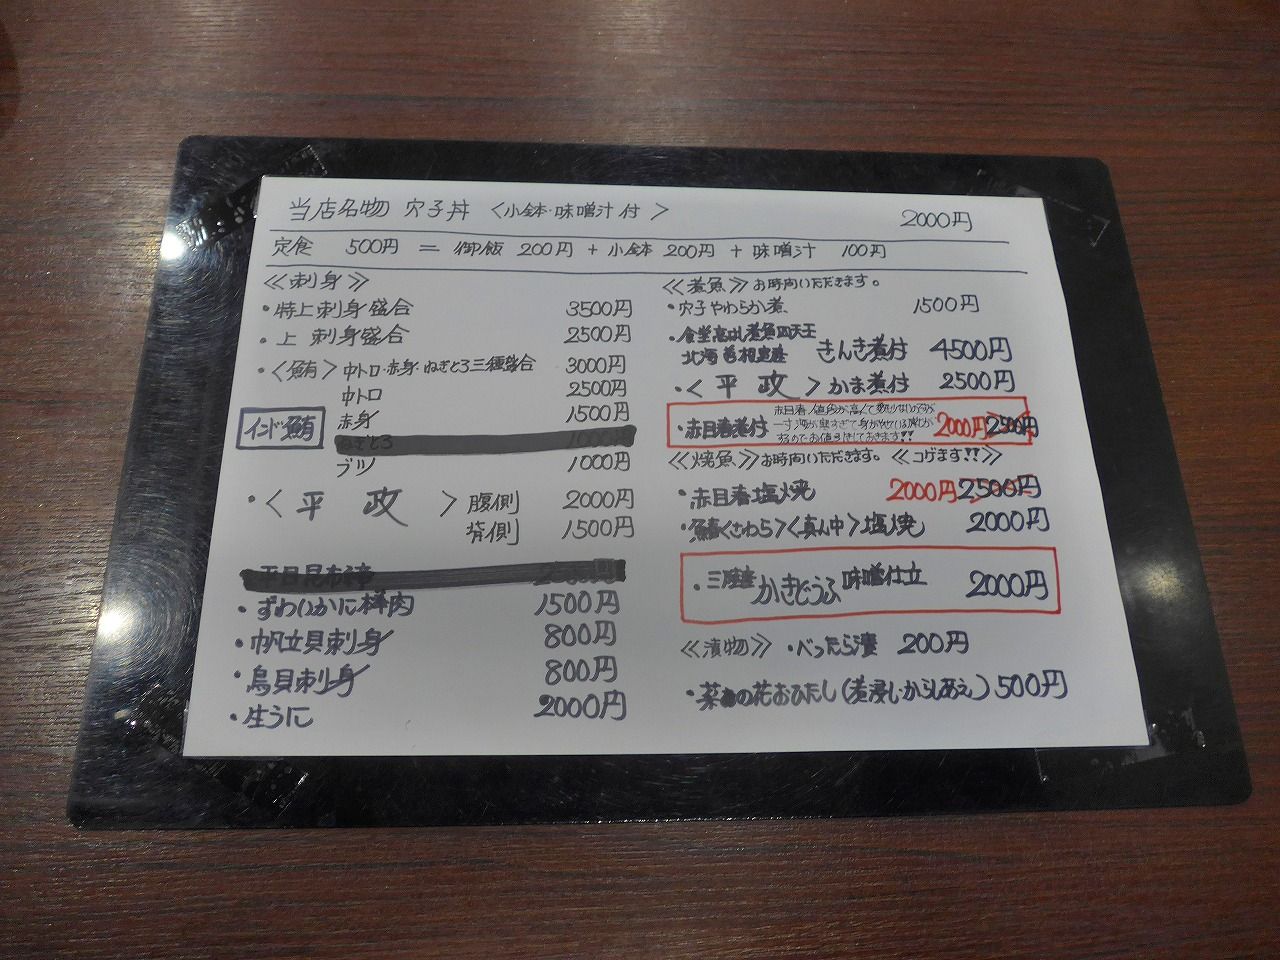 当店名物 穴子丼 〈小鉢・味噌汁付〉 2000円
定食 500円 = 御飯 200円 + 小鉢 200円 + 味噌汁 100円
≪刺身≫
・特上刺身盛合 3500円
・上 刺身盛合 2500円
・〈鮪〉中トロ・赤身・ねぎとろ三種盛合 3000円
中トロ 2500円
インド鮪
赤身 1500円
ねぎとろ 1000円
ブツ 1000円
・〈平政〉腹側 2000円
背側 1500円
平目昆布〆
・ずわいかに棒肉 1500円
・帆立貝刺身 800円
・鳥貝刺身 800円
・生うに 2000円
≪煮魚≫お時間いただきます。
・穴子やわらか煮 1500円
・食堂高はし煮魚四天王
北海 きんき煮付 4500円
・〈平政〉かま煮付 2500円
・赤目春煮付 2000円 2500円
≪焼魚≫お時間いただきます。≪コゲます!!≫
・赤目春塩焼 2000円 2500円
・鰆〈さわら〉〈真ん中〉塩焼 2000円
・三陸産かきどうふ味噌仕立 2000円
≪漬物≫・べったら漬 200円
・菜の花おひたし(煮浸し・からしあえ) 500円